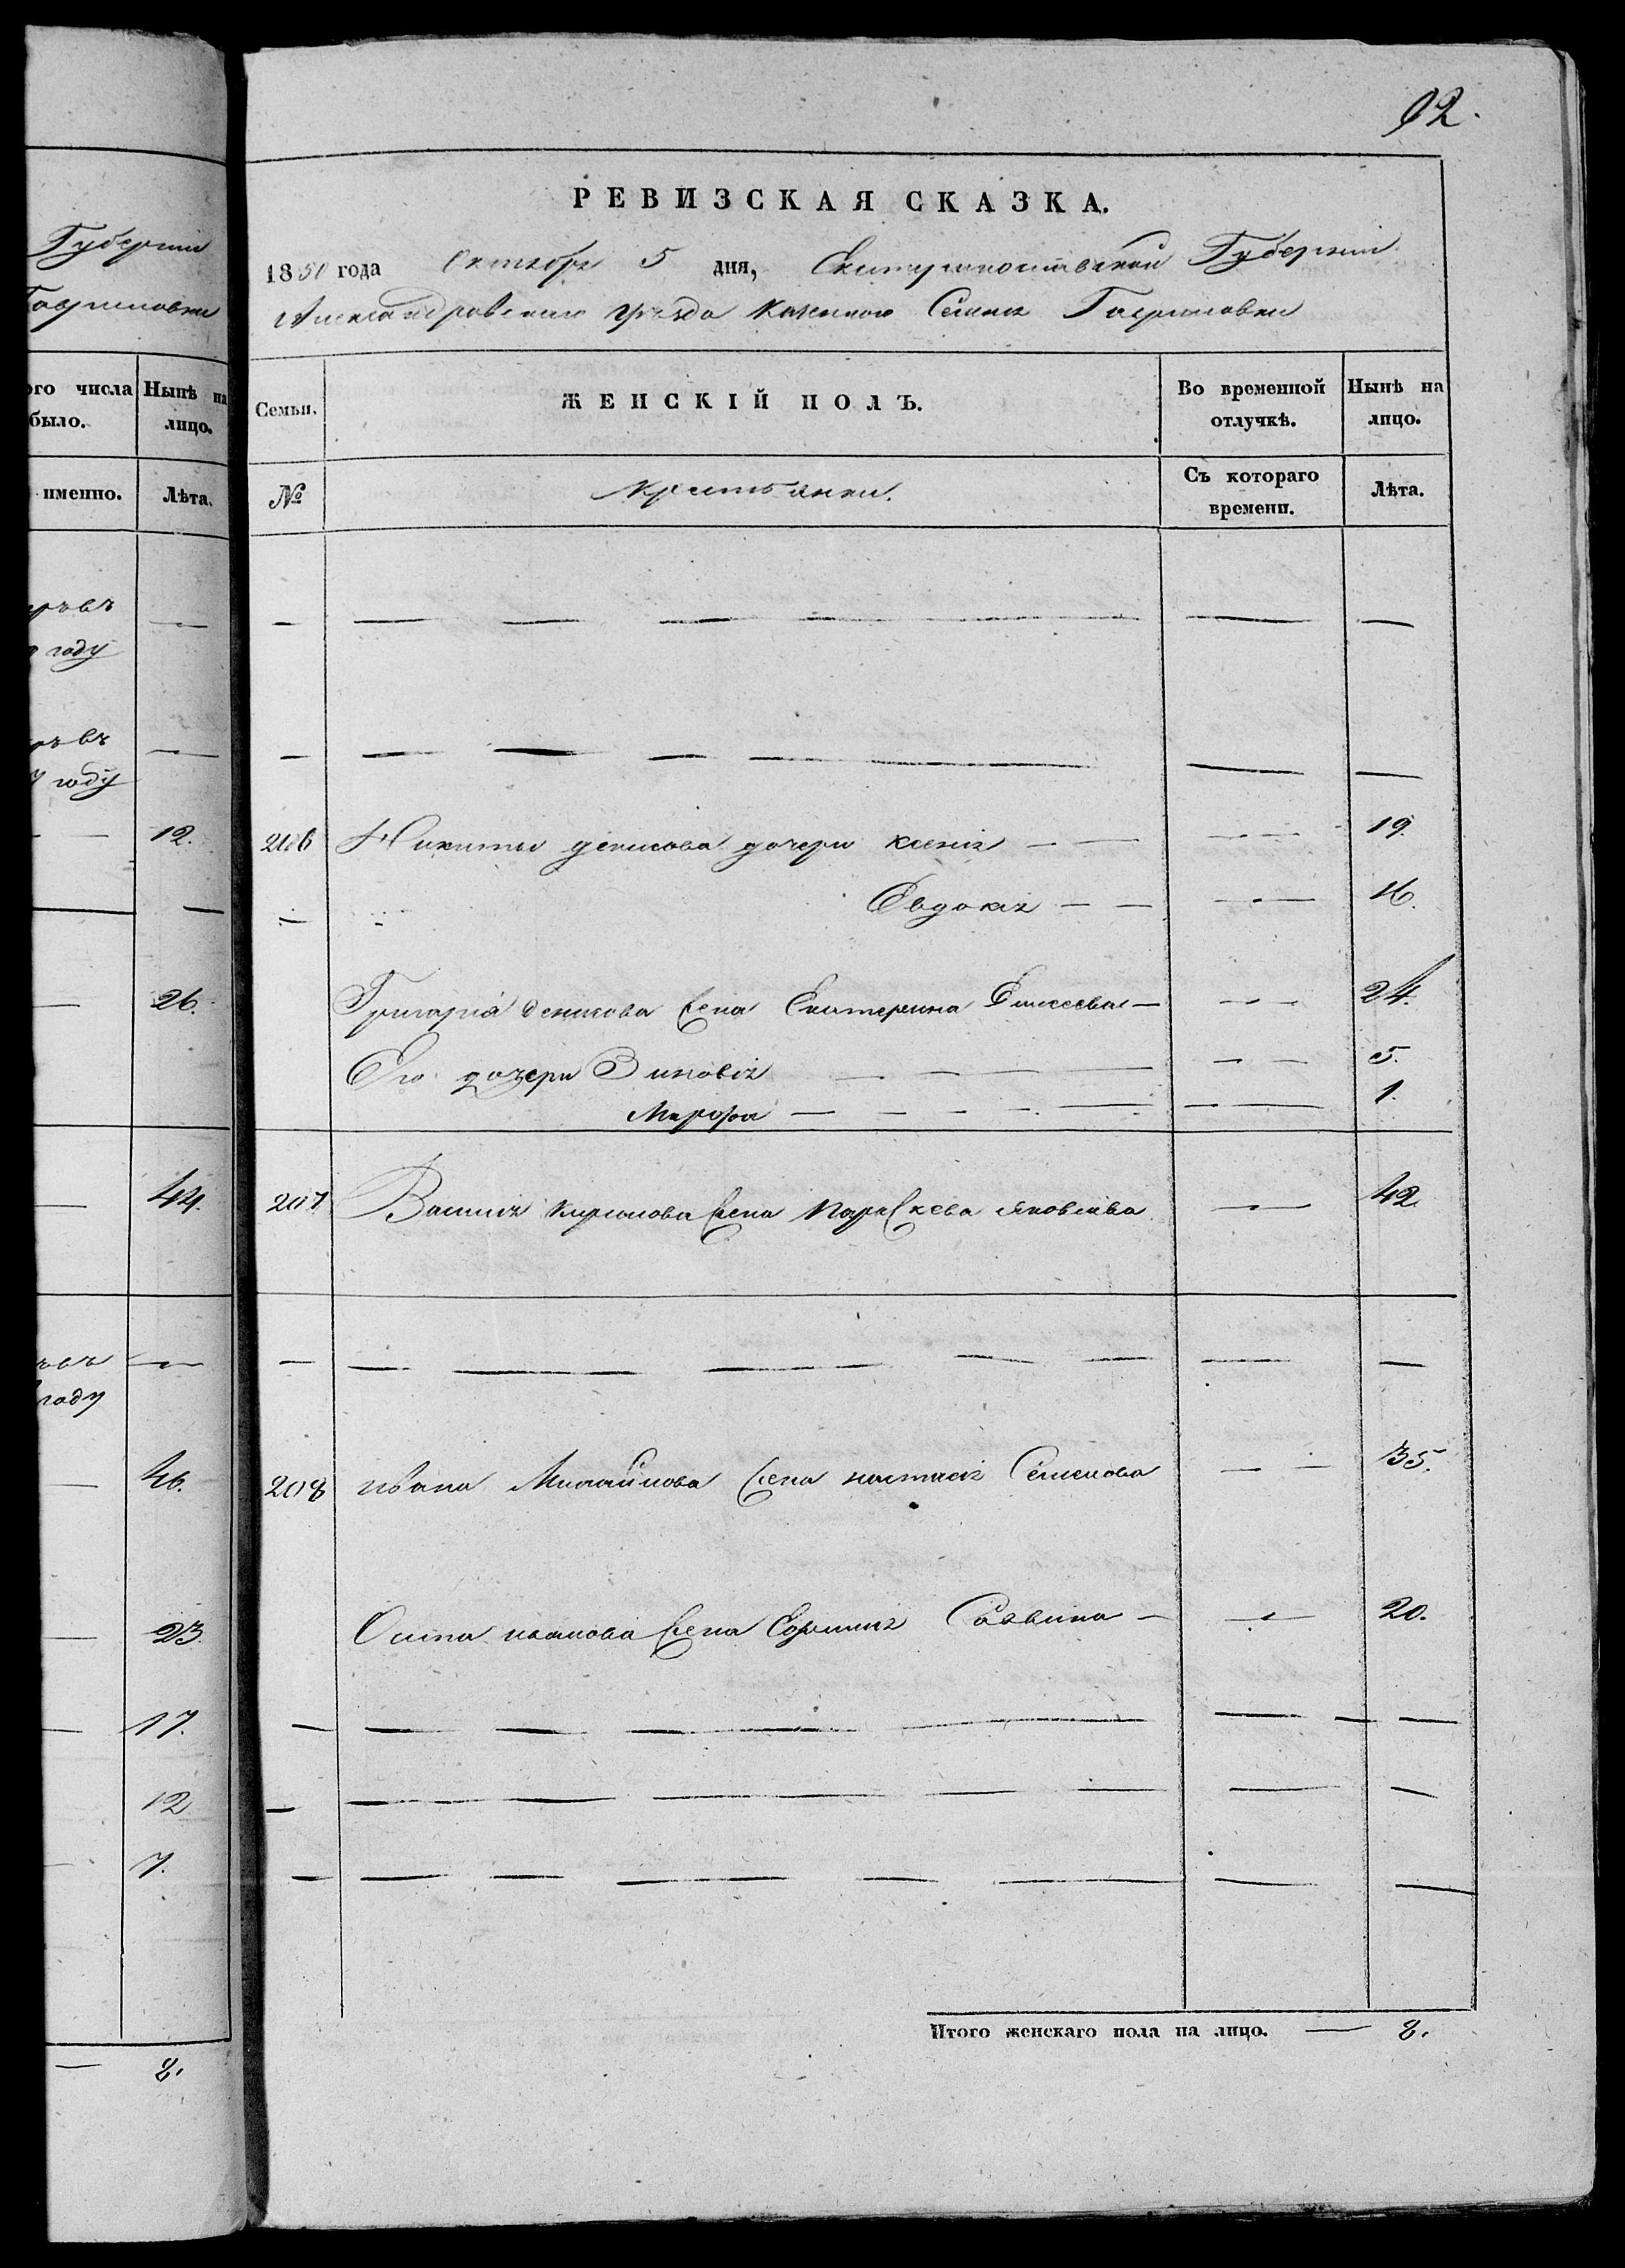 Губерніи
Гавриловки
ого числа
было.
Нынѣ на
лицо.
именно.
Лѣта.
году
году
12.
26.
44.
году
46.
23.
17.
12
7.
8.
92.
РЕВИЗСКАЯ СКАЗКА.
1850 года Октября 5 дня, Екатеринославской Губерніи
Александровскаго уѣзда Казенного Селенія Гавриловки
Семьи. ЖЕНСКІЙ ПОЛЪ. Во временной отлучкѣ. Нынѣ на лицо.
№ Крестьянки. Съ котораго времени. Лѣта.
206 Никиты денисова дочери ксенія 19.
Евдокія 16.
Григорія денисова жена Екатерина Елисеева 24.
Его дочери Зиновія 5.
Марфа 1.
207 Василія Кирилова жена Параскева яковлева 42
208 ивана Михайлова жена настасія Семенова 35.
Осипа иванова жена Савина 20.
Итого женскаго пола на лицо. 8.